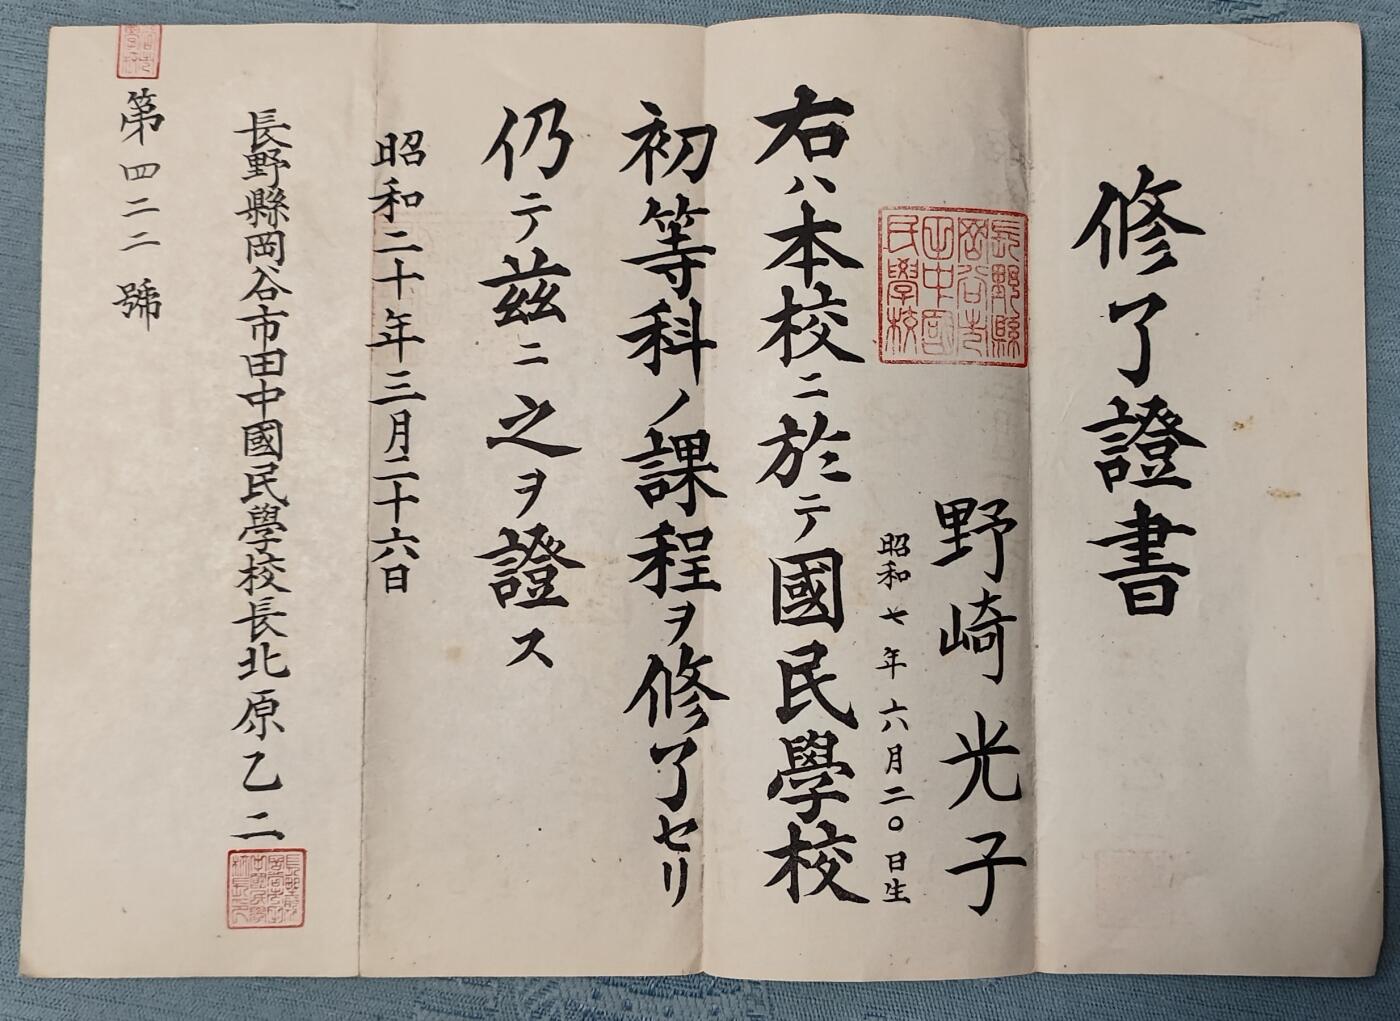 修了證書
野崎光子
昭和七年六月二〇日生
右ハ本校ニ於テ國民學校
初等科ノ課程ヲ修了セリ
仍テ茲ニ之ヲ證ス
昭和二十年三月二十六日
長野縣岡谷市田中國民學校長北原乙二
第四二二號
長野縣
岡谷市
田中國
民學校